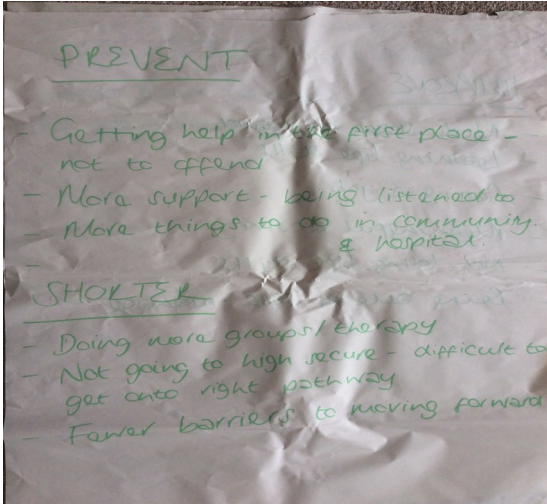 PREVENT
- Getting help in the first place -
not to offend
- More support - being listened to
- More things to do in community
& hospital.
-
SHORTER
- Doing more groups/therapy
- Not going to high secure - difficult to
get onto right pathway
- Fewer barriers to moving forward